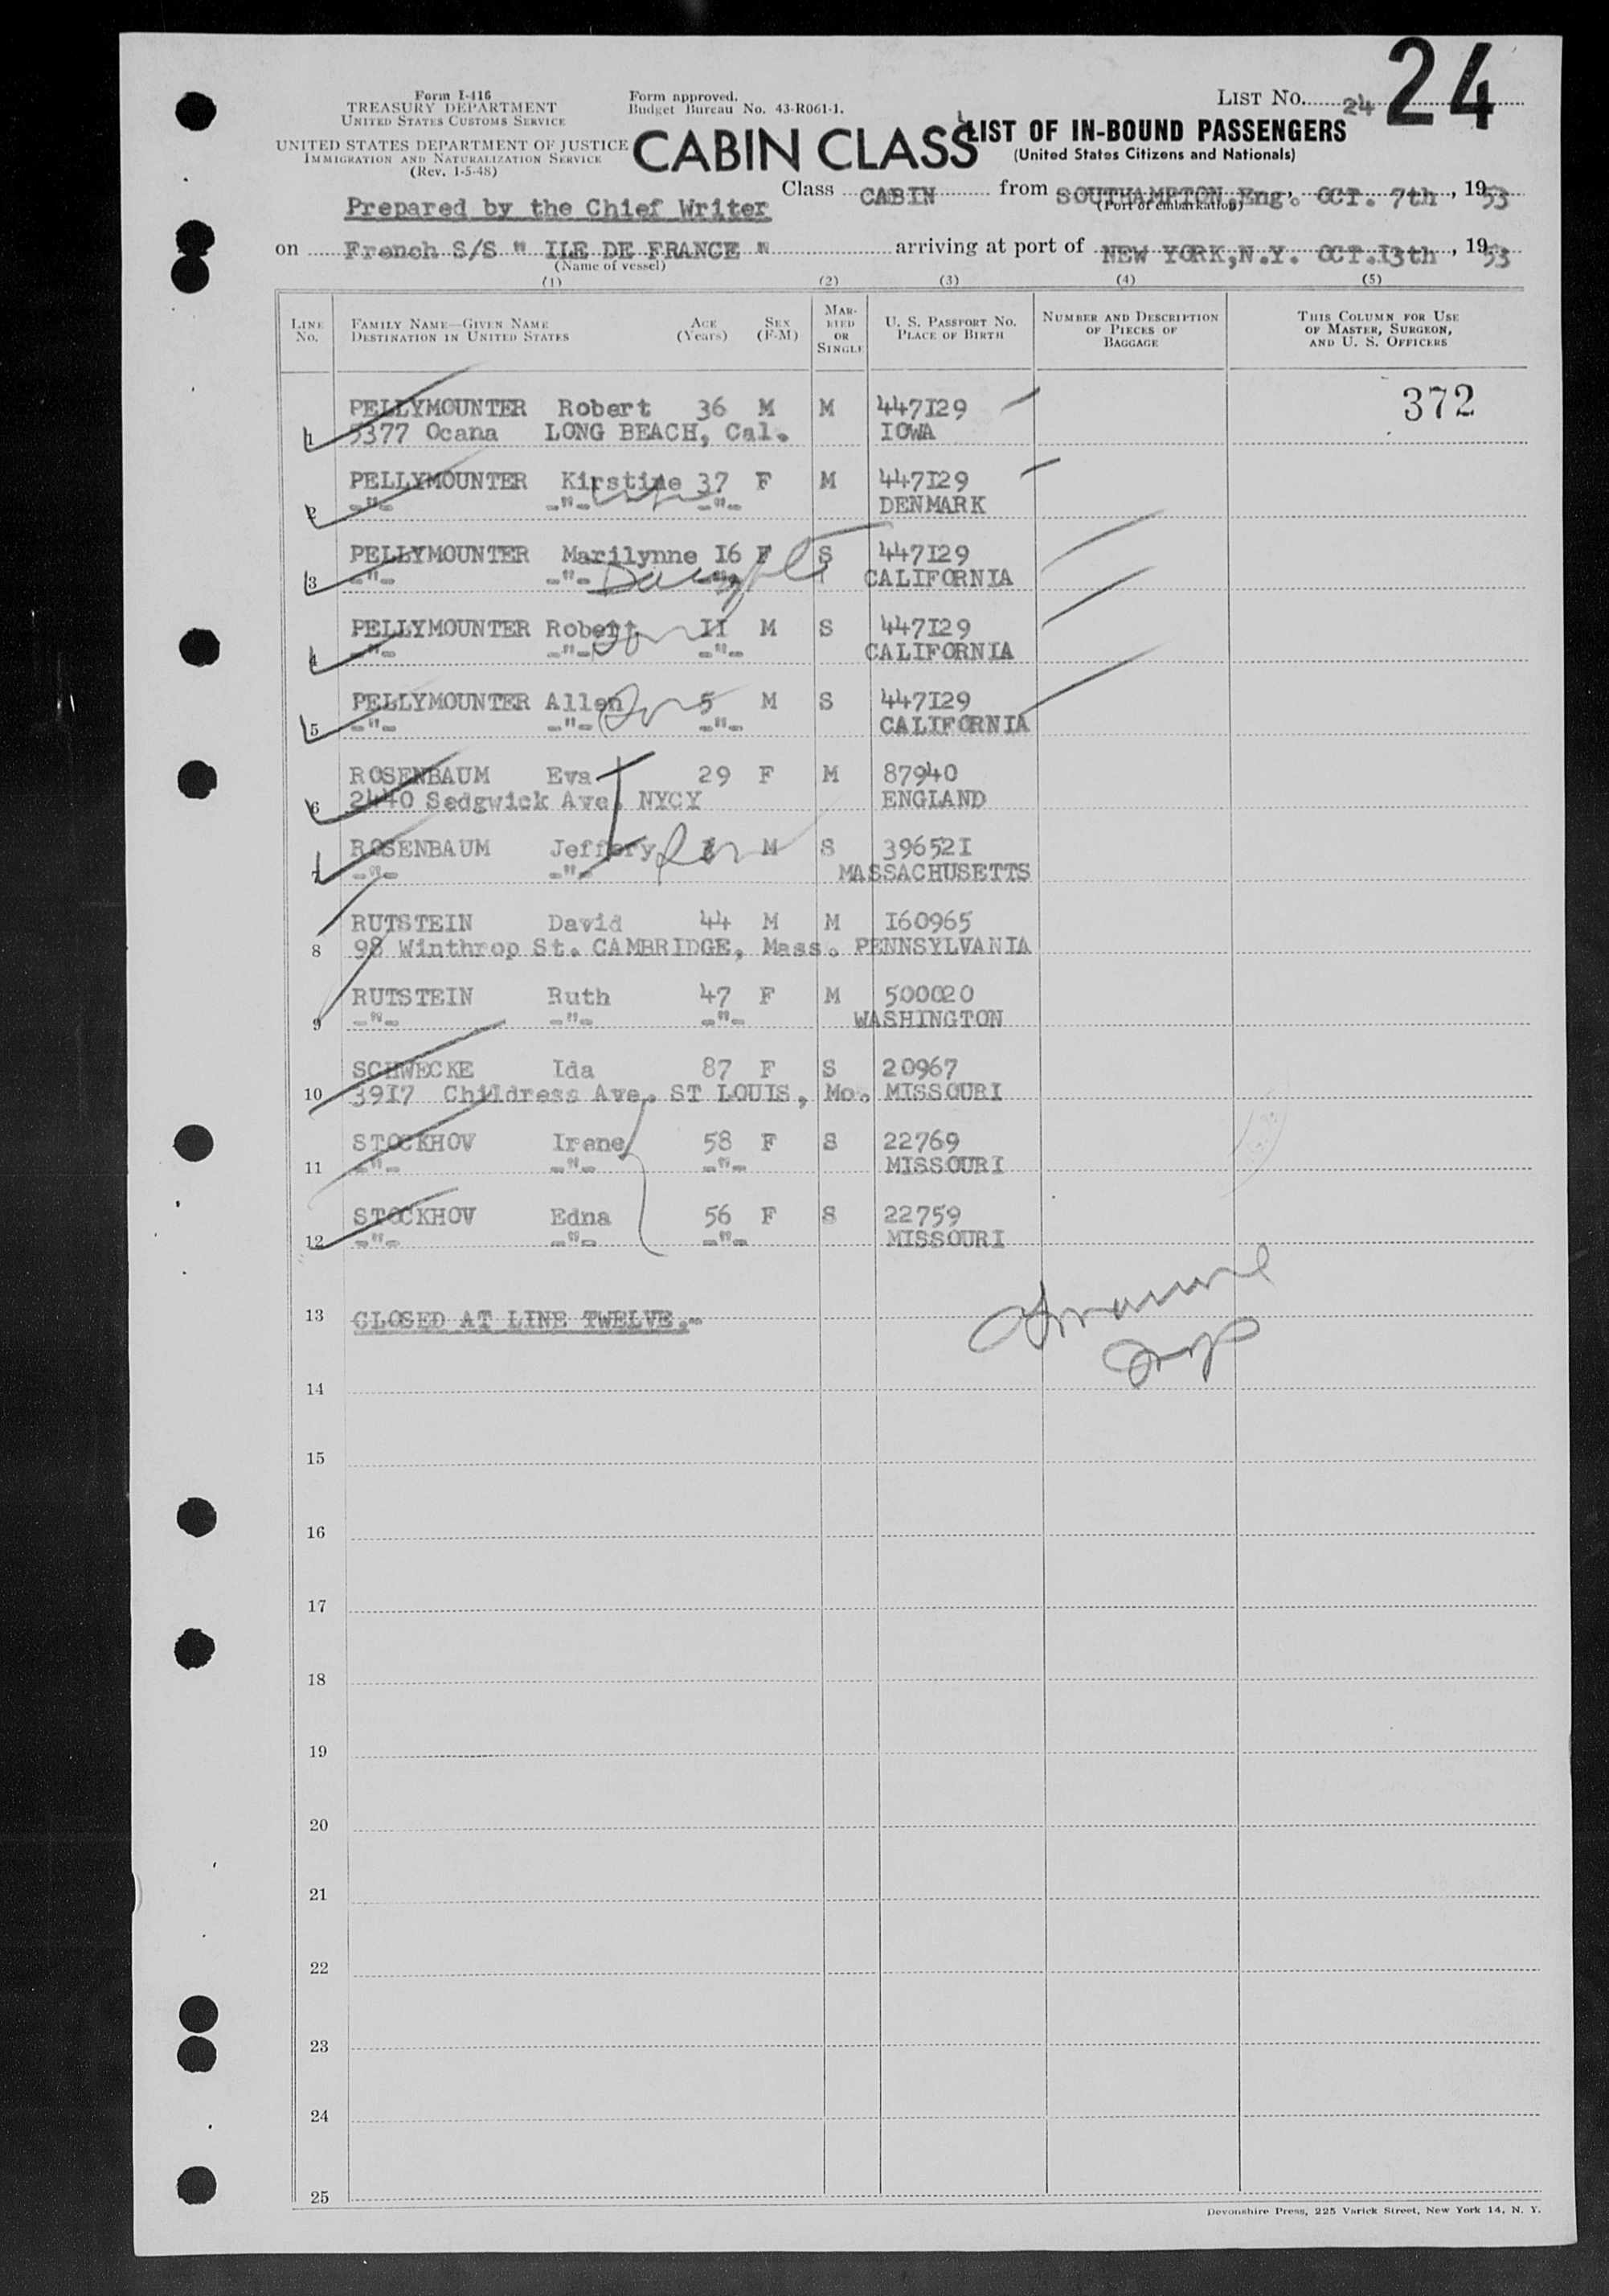 24
Form I-416
TREASURY DEPARTMENT
UNITED STATES CUSTOMS SERVICE
UNITED STATES DEPARTMENT OF JUSTICE
IMMIGRATION AND NATURALIZATION SERVICE
(Rev. 1-5-48)
Form approved.
Budget Bureau No. 43-R061-1.
LIST No. 24
CABIN CLASS
LIST OF IN-BOUND PASSENGERS
(United States Citizens and Nationals)
Class CABIN from SOUTHAMPTON,Eng., OCT. 7th, 1953
(Port of embarkation)
Prepared by the Chief Writer
on French S/S " ILE DE FRANCE " arriving at port of NEW YORK,N.Y. OCT.I3th, 1953
(Name of vessel)
(1) (2) (3) (4) (5)
LINE No. FAMILY NAME—GIVEN NAME DESTINATION IN UNITED STATES AGE (Years) SEX (F-M) MARRIED OR SINGLE U. S. PASSPORT No. PLACE OF BIRTH NUMBER AND DESCRIPTION OF PIECES OF BAGGAGE THIS COLUMN FOR USE OF MASTER, SURGEON, AND U. S. OFFICERS
PELLYMOUNTER Robert 36 M M 447I29 372
1 5377 Ocana LONG BEACH, Cal. IOWA
PELLYMOUNTER Kirstine 37 F M 447I29
2 -"- -"- wife -"- DENMARK
PELLYMOUNTER Marilynne I6 F S 447I29
3 -"- -"- Daught -"- CALIFORNIA
PELLYMOUNTER Robert II M S 447I29
4 -"- -"- son -"- CALIFORNIA
PELLYMOUNTER Allen Son 5 M S 447I29
5 -"- -"- -"- CALIFORNIA
ROSENBAUM Eva 29 F M 87940
6 2440 Sedgwick Ave. NYCY ENGLAND
ROSENBAUM Jeffery son M S 39652I
7 -"- -"- MASSACHUSETTS
RUTSTEIN David 44 M M I60965
8 98 Winthrop St. CAMBRIDGE, Mass. PENNSYLVANIA
RUTSTEIN Ruth 47 F M 500020
9 -"- -"- -"- WASHINGTON
SCHWECKE Ida 87 F S 20967
10 39I7 Childress Ave. ST LOUIS, Mo. MISSOURI
STOCKHOV Irene 58 F S 22769
11 -"- -"- -"- MISSOURI
STOCKHOV Edna 56 F S 22759
12 -"- -"- -"- MISSOURI
13 CLOSED AT LINE TWELVE.-
14
15
16
17
18
19
20
21
22
23
24
25
Devonshire Press, 225 Varick Street, New York 14, N. Y.